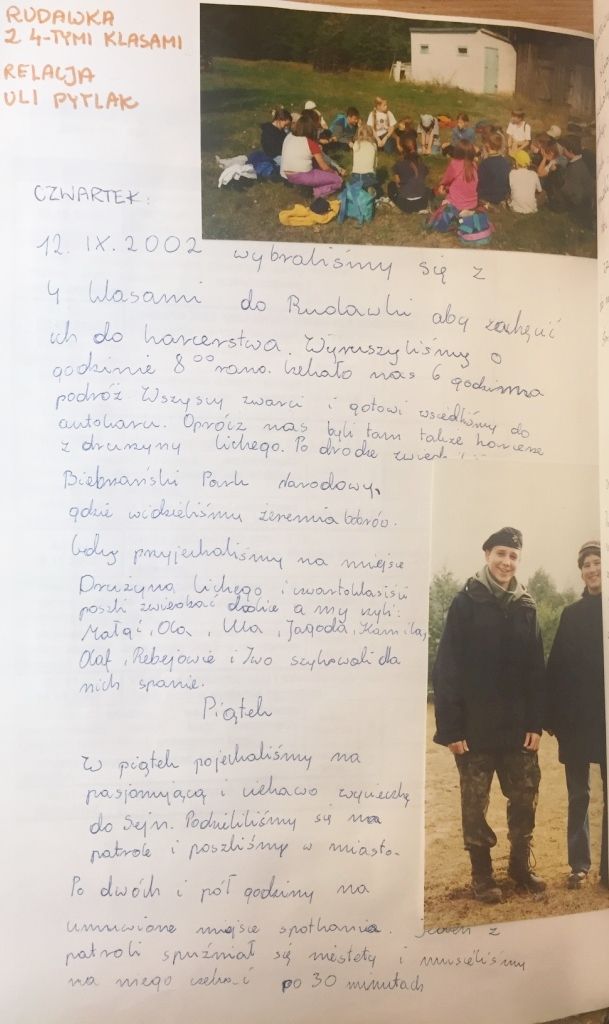 RUDAWKA
Z 4-TYMI KLASAMI
RELACJA
ULI PYTLAK
CZWARTEK:
12. IX. 2002 wybraliśmy się z
4 klasami do Rudawki aby zachęcić
ich do harcerstwa. Wyruszyliśmy o
godzinie 8°° rano. Czekało nas 6 godzinna
podróż. Wszyscy zwarci i gotowi wsiedliśmy do
autokaru. Oprócz nas byli tam także harcerze
z drużyny Cichego. Po drodze
Biebrzański Park Narodowy,
gdzie widzieliśmy żeremia bobrów.
Gdy przyjechaliśmy na miejsce
Drużyna Cichego i czwartoklasiści
poszli zwiedzać okolice a my czyli:
Małgi, Ola, Ula, Jagoda, Kamila,
Olaf, Rebejowie i Iwo szykowali dla
nich spanie.
Piątek
W piątek pojechaliśmy na
pasjonującą i ciekawą wycieczkę
do Sejn. Podzieliliśmy się na
patrole i poszliśmy w miasto.
Po dwóch i pół godziny na
umuwione miejsce spotkania. Jeden z
patroli spuźniał się niestety i musieliśmy
na niego czekać po 30 minutach